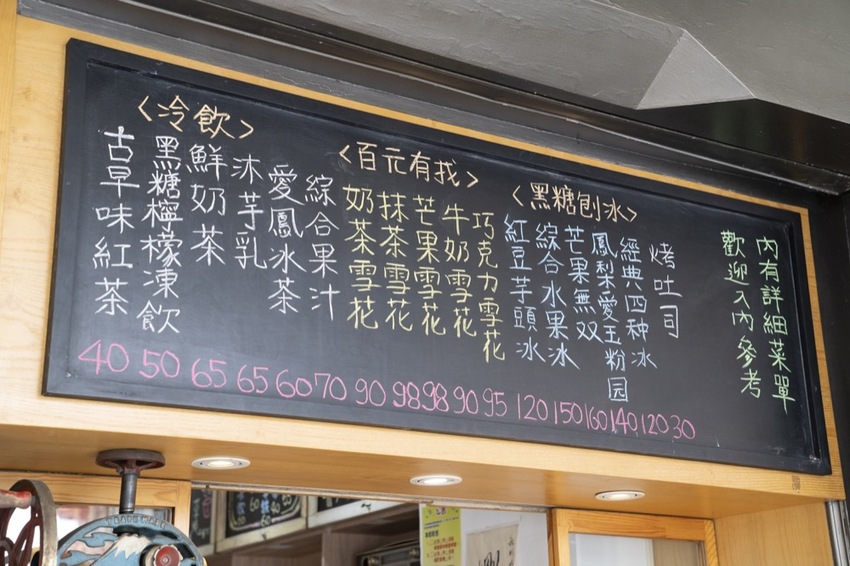 <冷飲>
古早味紅茶
黑糖檸檬凍飲
鮮奶茶
沐芋乳
愛鳳冰茶
綜合果汁
<百元有找>
奶茶雪花
抹茶雪花
芒果雪花
牛奶雪花
巧克力雪花
<黑糖刨冰>
紅豆芋頭冰
綜合水果冰
芒果無双
鳳梨愛玉粉园
經典四种冰
烤吐司
40 50 65 65 60 70 90 98 98 90 95 120 150 160 140 120 30
內有詳細菜單
歡迎入內參考